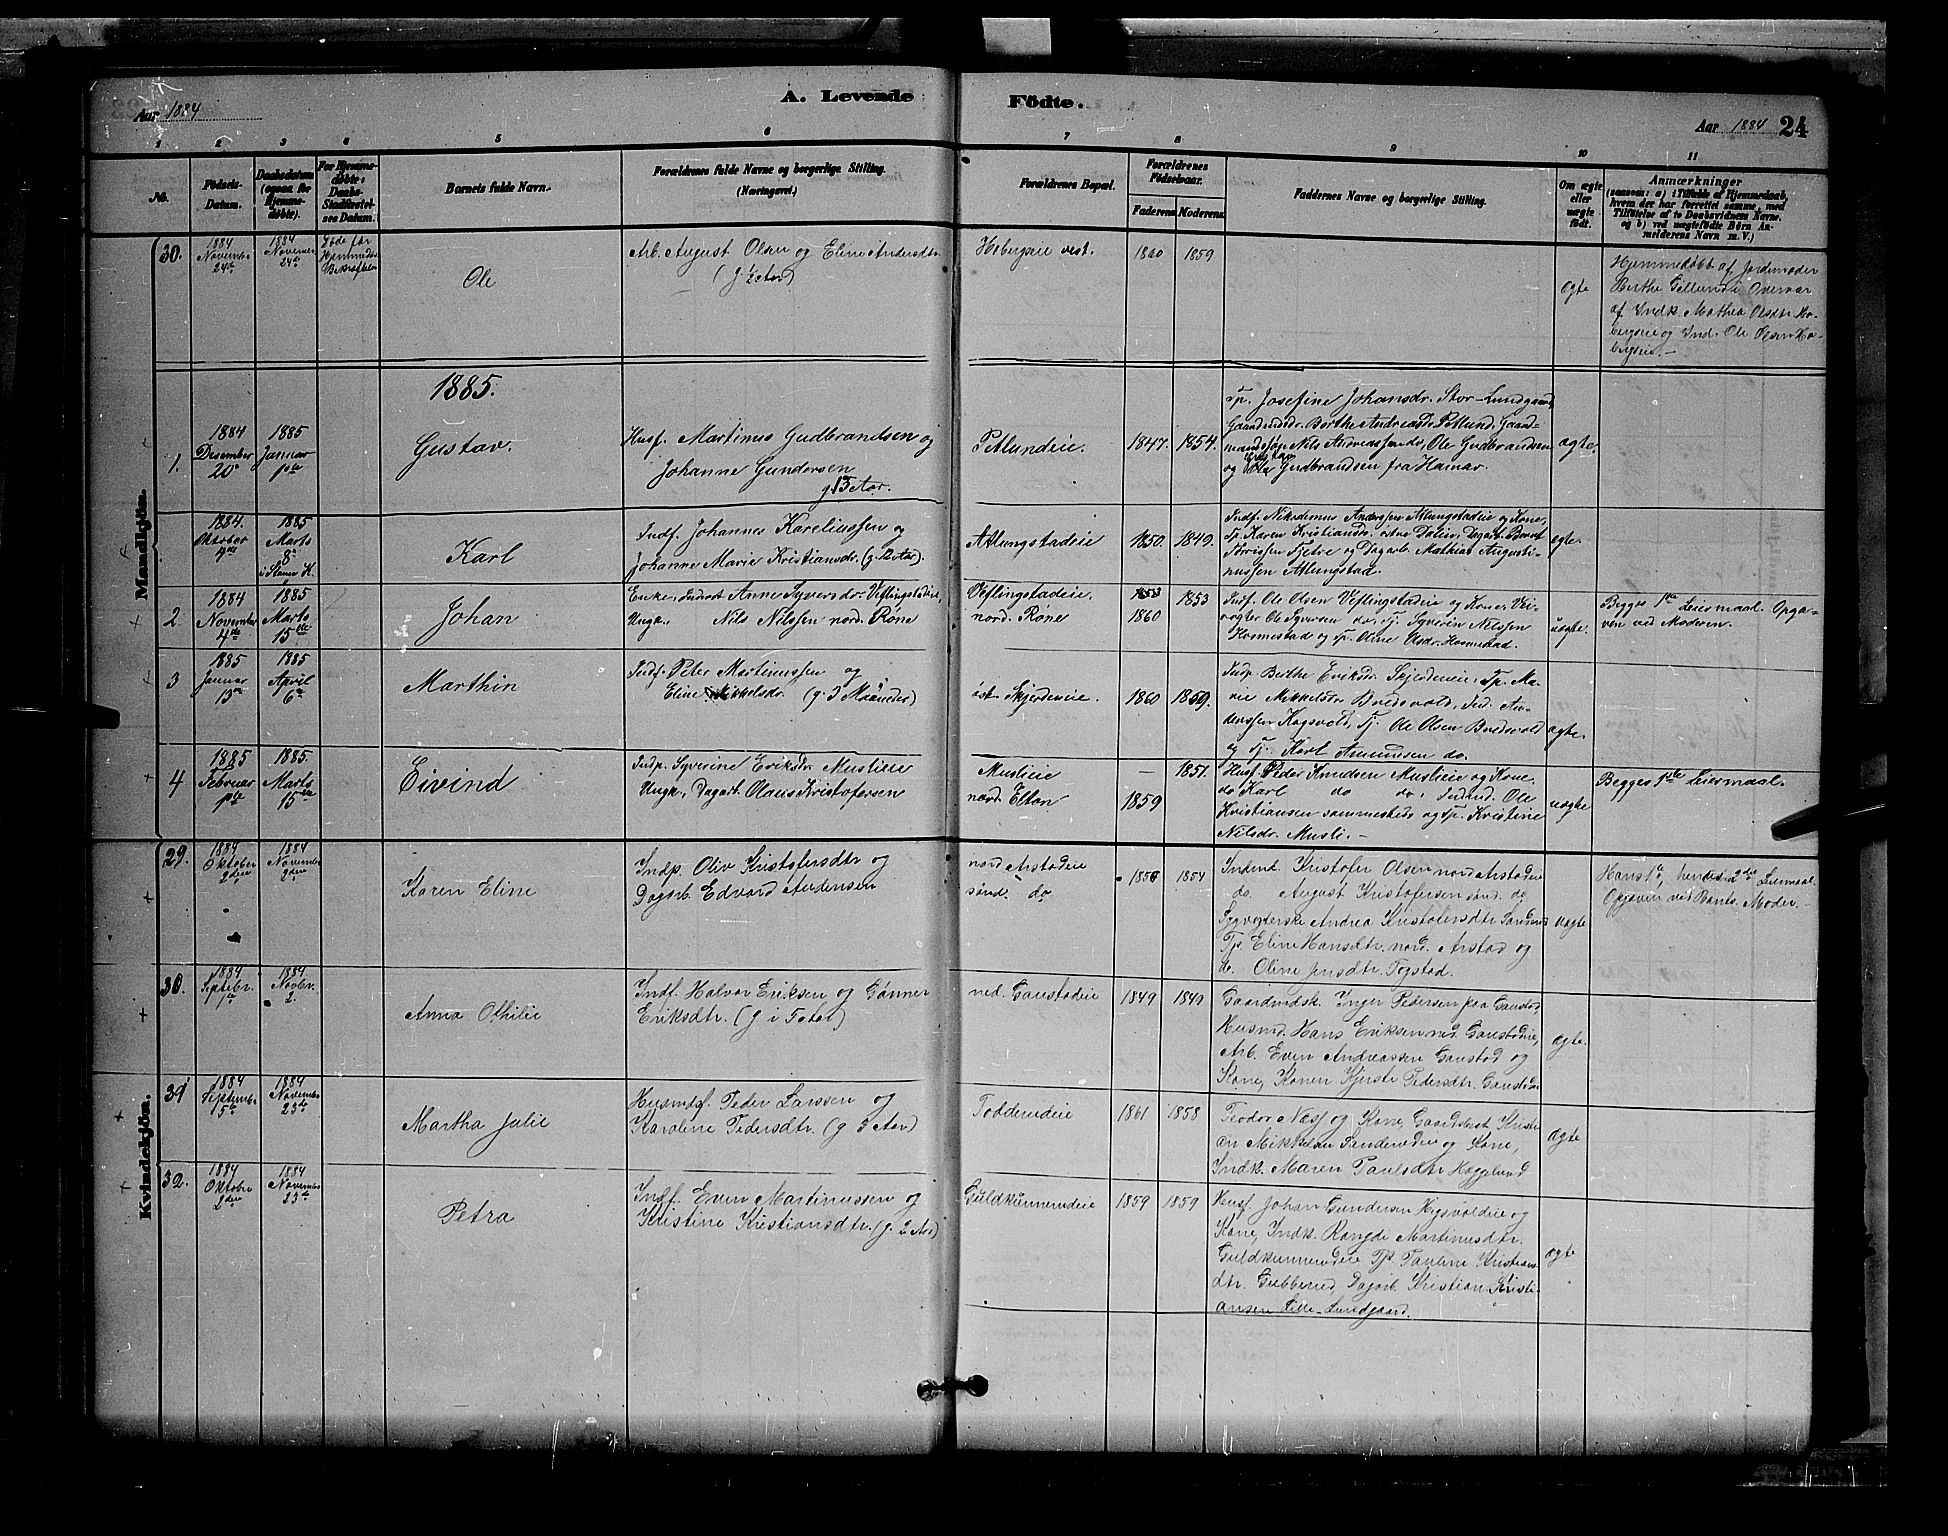 Aar 1884
A. Levende
Födte.
Aar 1884 24
1 2 3 4 5 6 7 8 9 10 11
No.
Födsels-
Datum.
Daabsdatum
(ogsaa for
Hjemme-
döbte).
For Hjemme-
döbte:
Daabs-
Stadfæstel-
ses Datum.
Barnets fulde Navn.
Forældrenes fulde Navne og borgerlige Stilling.
(Næringsvei.)
Forældrenes Bopæl.
Forældrenes
Födselsaar.
Faderens. Moderens.
Faddernes Navne og borgerlige Stilling.
Om ægte
eller
uægte
födt.
Anmærkninger
(saasom: a) i Tilfælde af Hjemmedaab,
hvem der har forrettet samme, med
Tilföielse af to Daabsvidners Navne,
og b) ved uægtefödte Börn An-
melderens Navn m. V.)
Mandkjön.
30.
1884
November
24de
1884
November
24de
Döde før
Ole
Arb. August Olsen og Eline Andersdtr.
(g. ½ Aar)
Hobergseie vest.
1860 1859
ægte
Hjemmedöbt af Jordemoder
Berthe Gillund i Overvær
af Indk. Mathea Olsdtr. Ho-
bergseie og Ind. Ole Olsen Ho-
bergseie.
1885.
1.
1884
Desember
20de
1885
Januar
1ste
Gustav.
Husf. Martinus Gudbrandsen og
Johanne Gundersen
g. 13 Aar.
Petlundeie.
1847. 1854.
Tp. Josefine Johansdr. Stor-Lundgaard,
Gaardmdsdr. Berthe Andreasdr. Petlund, Gaard-
mandssøn Nils Andreassen do, Ole Gudbrandsen
og Gudbrandsen fra Hamar.
ægte.
1884.
Oktober
4de
1885
Marts
8de
i Stange K.
Karl
Indf. Johannes Kareliussen og
Johanne Marie Kristiansdr. (g. 12 Aar).
Atlungstadeie
1850. 1849.
Indf. Nikodemus Anderssen Atlungstadeie og Kone,
Tp. Karen Kristiansdr. østre Dalein, Dagarb. Bernt
Børresen Tjetre og Dagarb. Mathias Augusti-
nussen Atlungstad.
ægte.
2
1884
November
4de
1885
Marts
15de
Johan
Enke, Inderst Anne Syversdr. Viflingstadeie,
Ungk. Nils Nilssen nord. Røne
Viflingstadeie.
nord. Røne
1853
1860
1853
Indf. Ole Olsen Viflingstadeie og Kone, Vei-
vogter Ole Syversen do, Tj. Syverin Nilssen
Hommestad og Tp. Oline Olsdr. Hommestad.
uægte.
Begges 1ste Leiermaal. Opga-
ven ved Moderen.
3
1885
Januar
13de
1885
April
6te
Marthin
Indf. Peter Martinussen og
Eline Mikkelsdr. (g. 3 Maaneder)
øst. Skjerdeneie.
1860 1859.
Indp. Berthe Eriksdr. Skjerdeneie, Tp. Ma-
rie Mikkelsdr. Bredsvold, Ind. An-
derssen Kagsvold, Tj. Ole Olsen Bredsvold
og Tj. Karl Amundsen do.
ægte.
4
1885
Februar
1ste
1885.
Marts
15de
Eivind
Indp. Syverine Eriksdr. Muslieie
Ungk., Dagarb. Olaus Kristofersen
Muslieie
nord. Elton
—
1859
1851.
Husf. Peder Knudsen Muslieie og Kone,
do Karl do do, Indand. Ole
Kristiansen sammesteds og Tp. Kristine
Nilsdr. Musli. —
uægte
Begges 1ste Leiermaal.
Kvindekjön.
29.
1884
Oktober
2den
1884
November
2den
Karen Eline
Indp. Oliv Kristofersdtr. og
Dagarb. Edvard Andersen
nord. Arstadeie
sönd. do
1856 1854
Inderst Kristofer Olsen nord. Arstadeie
do. August Kristofersen sönd. do
Andrea Kristofersdtr.
Tp. Eline Hansdtr. nord. Arstad og
do. Oline Jensdtr. Togstad.
uægte
Hans 1ste, hendes 2det Leiermaal.
Opgaven ved Barnets Moder.
30.
1884
Septebr.
1ste
1884
Novbr.
2.
Anna Othilie
Indf. Halvor Eriksen og Gönner
Eriksdtr. (g. i 5 Aar)
ned. Gaustadeie
1849 1849
Gaardmdsk. Inger Pedersen paa Gaustad,
Husmd. Hans Eriksen ned. Gaustadeie,
Arb. Even Andreassen Gaustad og
Kone, Konen Kjersti Pedersdtr. Gaustadeie
ægte.
31
1884
Septembr.
15de
1884
Novembr.
23de
Martha Julie
Husmdsf. Peder Larssen og
Karoline Pedersdtr. (g. 3 Aar)
Todderudeie
1861 1858
Teodor Næsj og Kone, Gaardsbest. Kristi-
an Mikkelsen Tanderudeie og Kone,
Indk. Maren Paulsdtr. Haggelund
ægte
32.
1884
Oktobr.
2den
1884
November
23de
Petra
Indf. Even Martinussen og
Kristine Kristiansdtr. (g. 2 Aar)
Guldkunnerudeie
1859 1859
Husf. Johan Gundersen Hegsvoldeie og
Kone, Indk. Rangdi Martinusdtr.
Guldkunnerudeie, Tp. Pauline Kristians-
dtr. Gubberud, Dagarb. Kristian Kristi-
ansen Lille-Lundgaard.
ægte